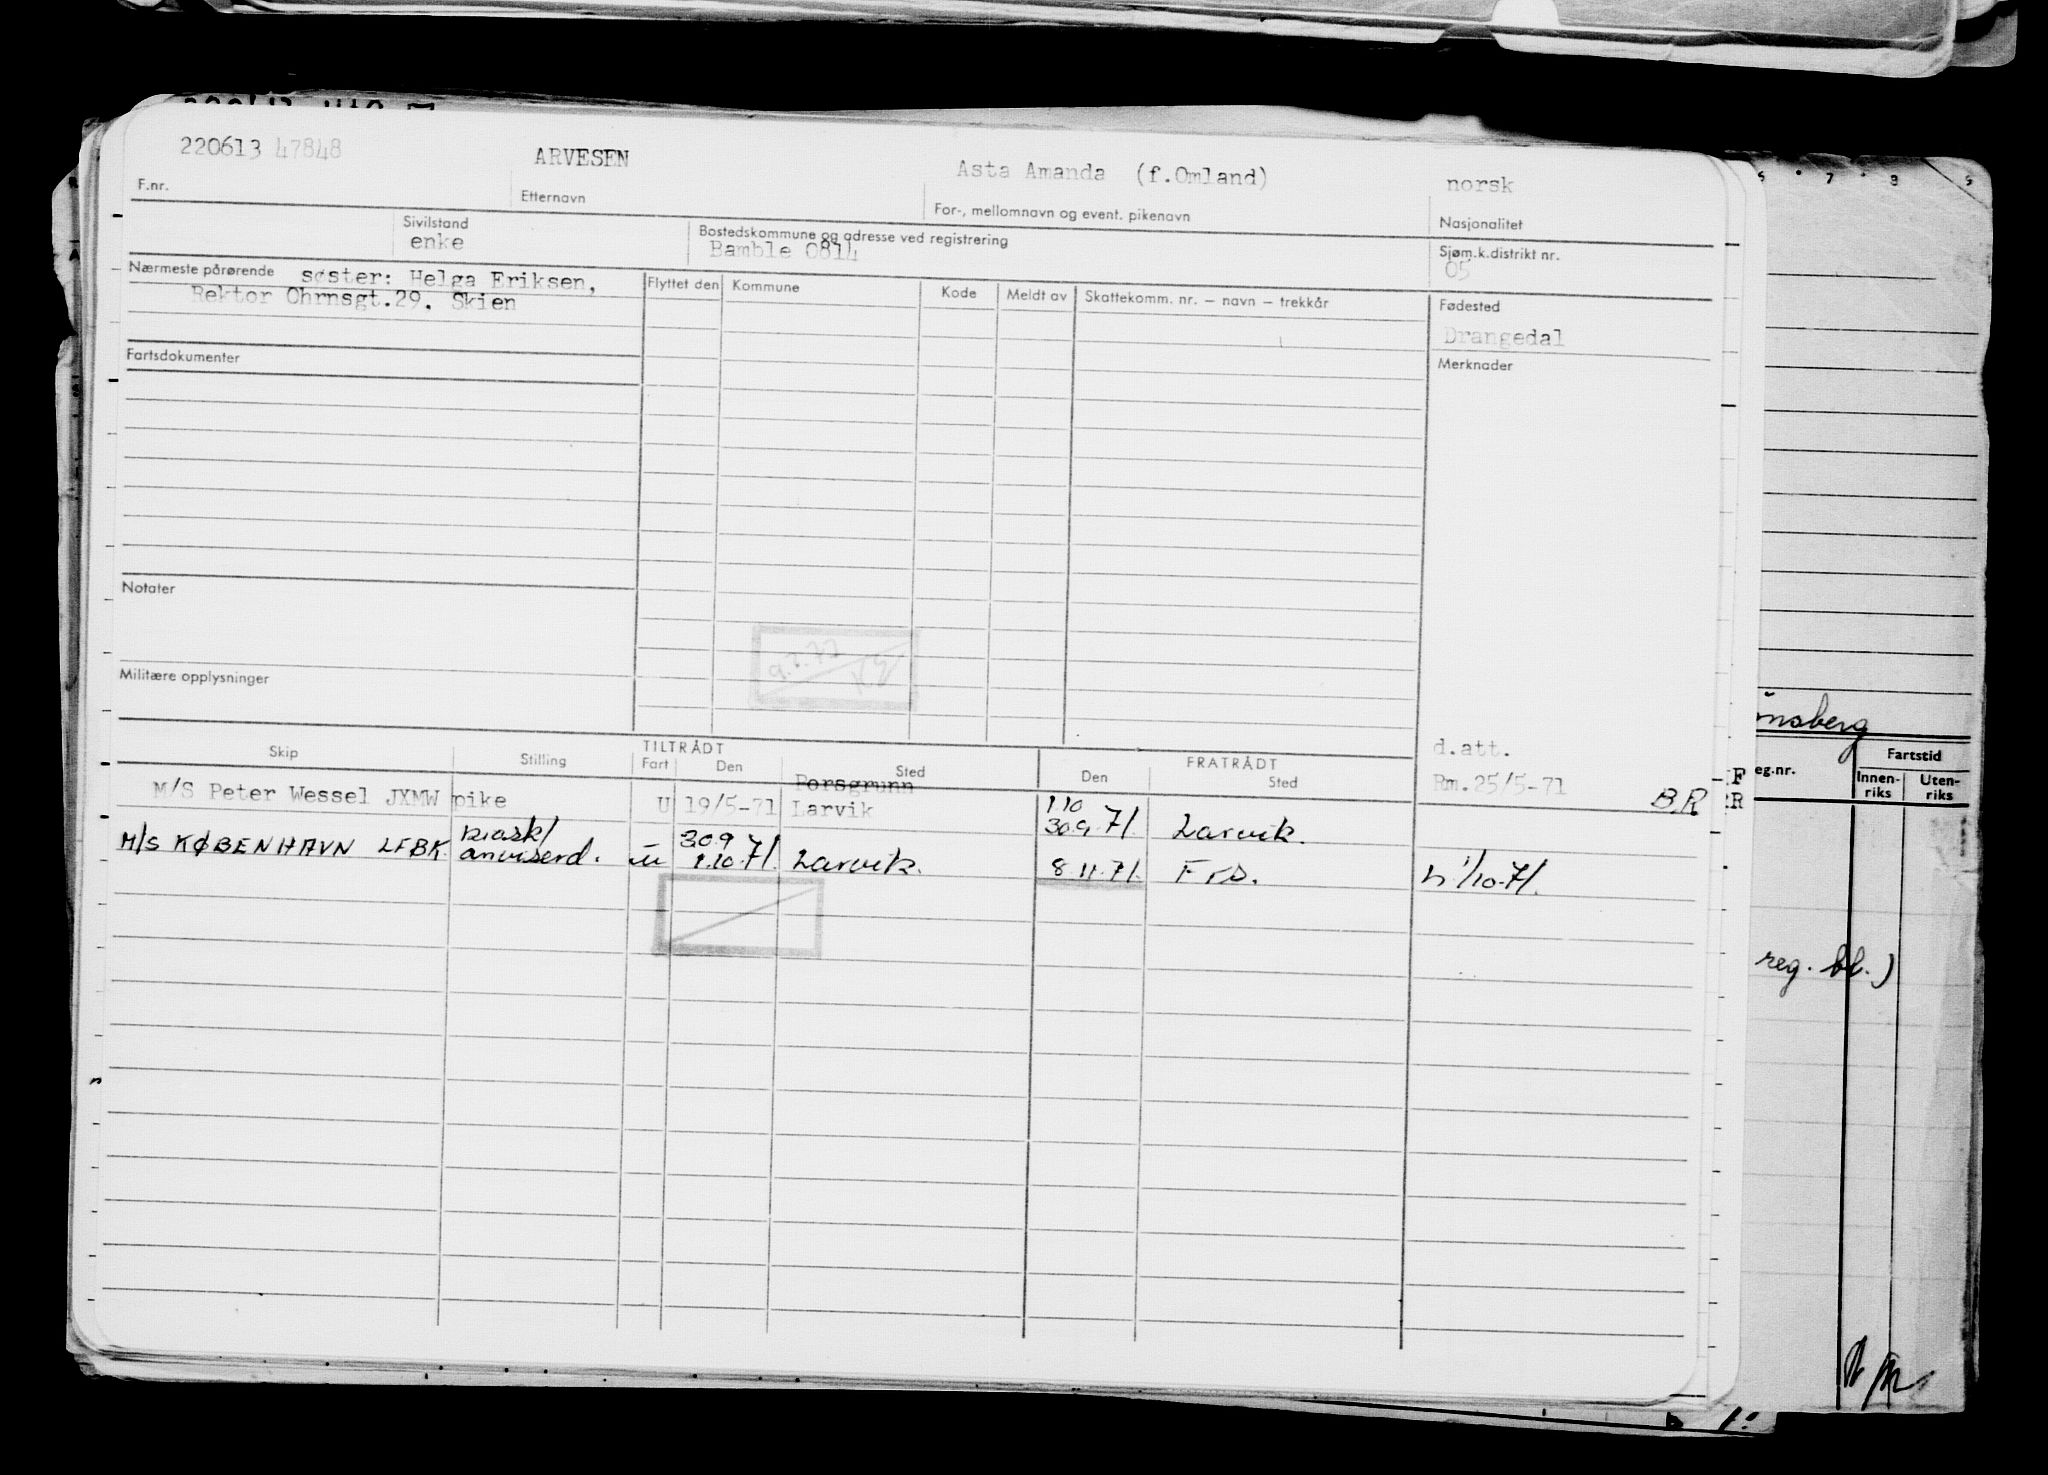 220613 47848 ARVESEN Asta Amanda (f.Omland) norsk
F.nr. Etternavn For-, mellomnavn og event. pikenavn Nasjonalitet
Sivilstand Bostedskommune og adresse ved registrering Sjøm.k.distrikt nr.
enke Bamble 0814 05
Nærmeste pårørende søster: Helga Eriksen, Flyttet den Kommune Kode Meldt av Skattekomm. nr. – navn – trekkår Fødested
Rektor Ohrnsgt.29. Skien
Drangedal
Fartsdokumenter Merknader
Notater
9.2.72
Militære opplysninger
ønsberg
Skip Stilling TILTRÅDT Fart Den Sted FRATRÅDT Den Sted d.att.
Fartstid
eg.nr. Innen-riks Uten-riks
Porsgrunn
M/S Peter Wessel JXMW pike U 19/5-71 Larvik 1.10 30.9.71. Larvik. Rm.25/5-71 BR
M/S KØBENHAVN LFBK. kiosk/ anviserd. u 30.9 1.10.71. Larvik. 8.11.71. Frs. 1/10-71.
reg. bl.)